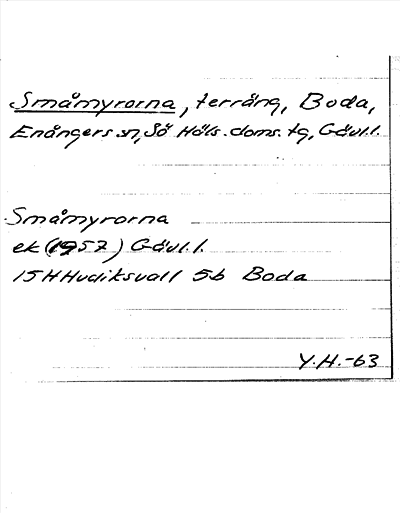 Småmyrorna, terräng, Boda,
Enångers sn, Sö Häls. doms. tg, Gävl.l.
Småmyrorna
ek (1957) Gävl.l.
15HHudiksvall 5b Boda
Y.H.-63